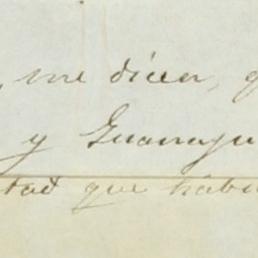 , me dicen, q
y Guanaju
tad que habi